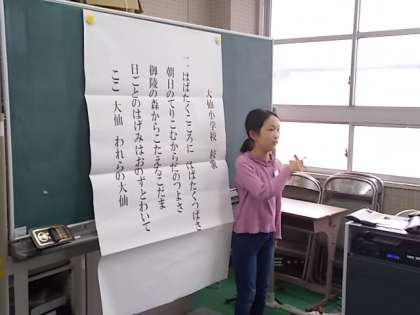 大仙小学校　校歌
一、はばたくこころに　はばたくつばさ
朝日のてりこむからだのつよさ
御陵の森からこたえるこだま
日ごとのはげみはおのずとわいて
ここ　大仙　われらの大仙